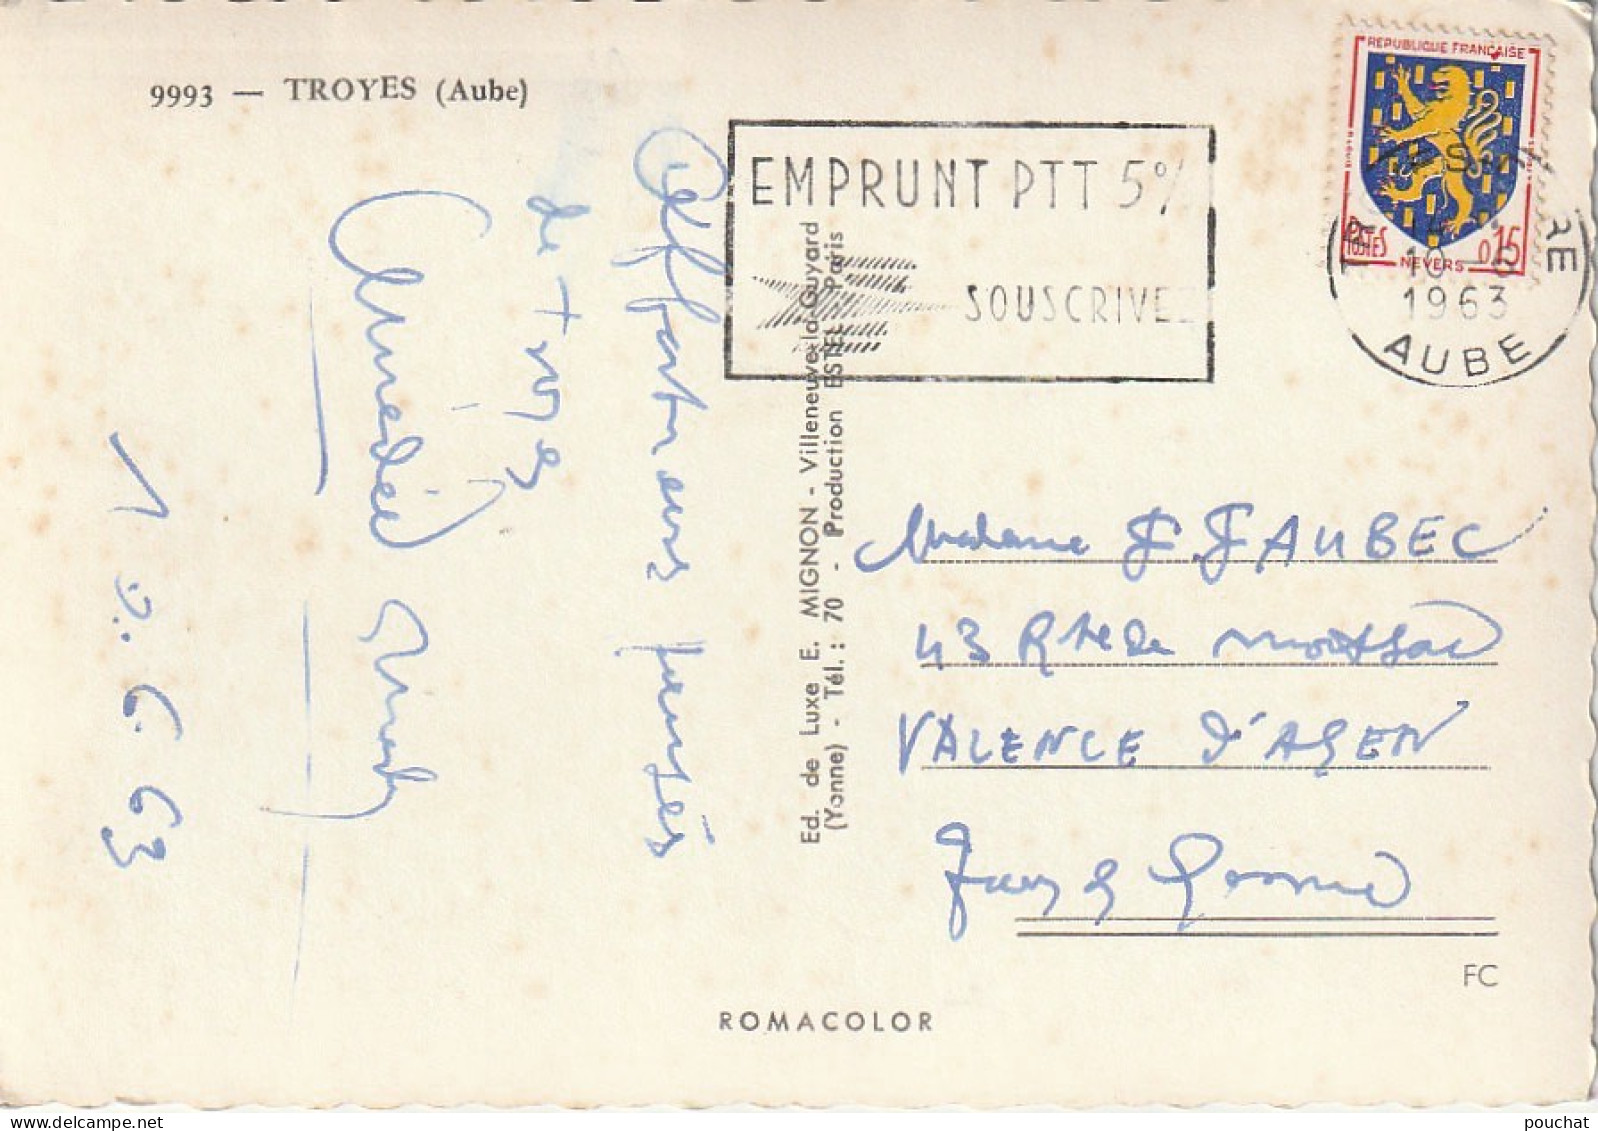 9993 — TROYES (Aube)
Affectueuses pensées
de Troyes
Amédée
10. 6. 63
EMPRUNT PTT 5%
SOUSCRIVEZ
REPUBLIQUE FRANÇAISE
POSTES
0,15
NEVERS
1963
AUBE
Ed. de Luxe E. MIGNON - Villeneuve-la-Guyard
(Yonne) - Tél. : 70 - Production ESTEL Paris
Madame F FAUBEC
43 Rte de Moissac
VALENCE D'AGEN
Tarn & Garonne
FC
ROMACOLOR
pouchat